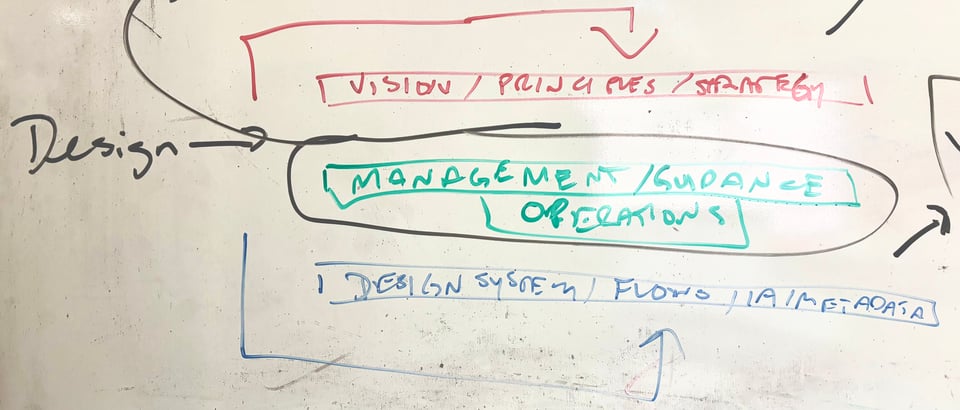 VISION / PRINCIPLES / STRATEGY
Design
MANAGEMENT / GUDANCE
OPERATIONS
DESIGN SYSTEM / FLOWS / IA / METADATA